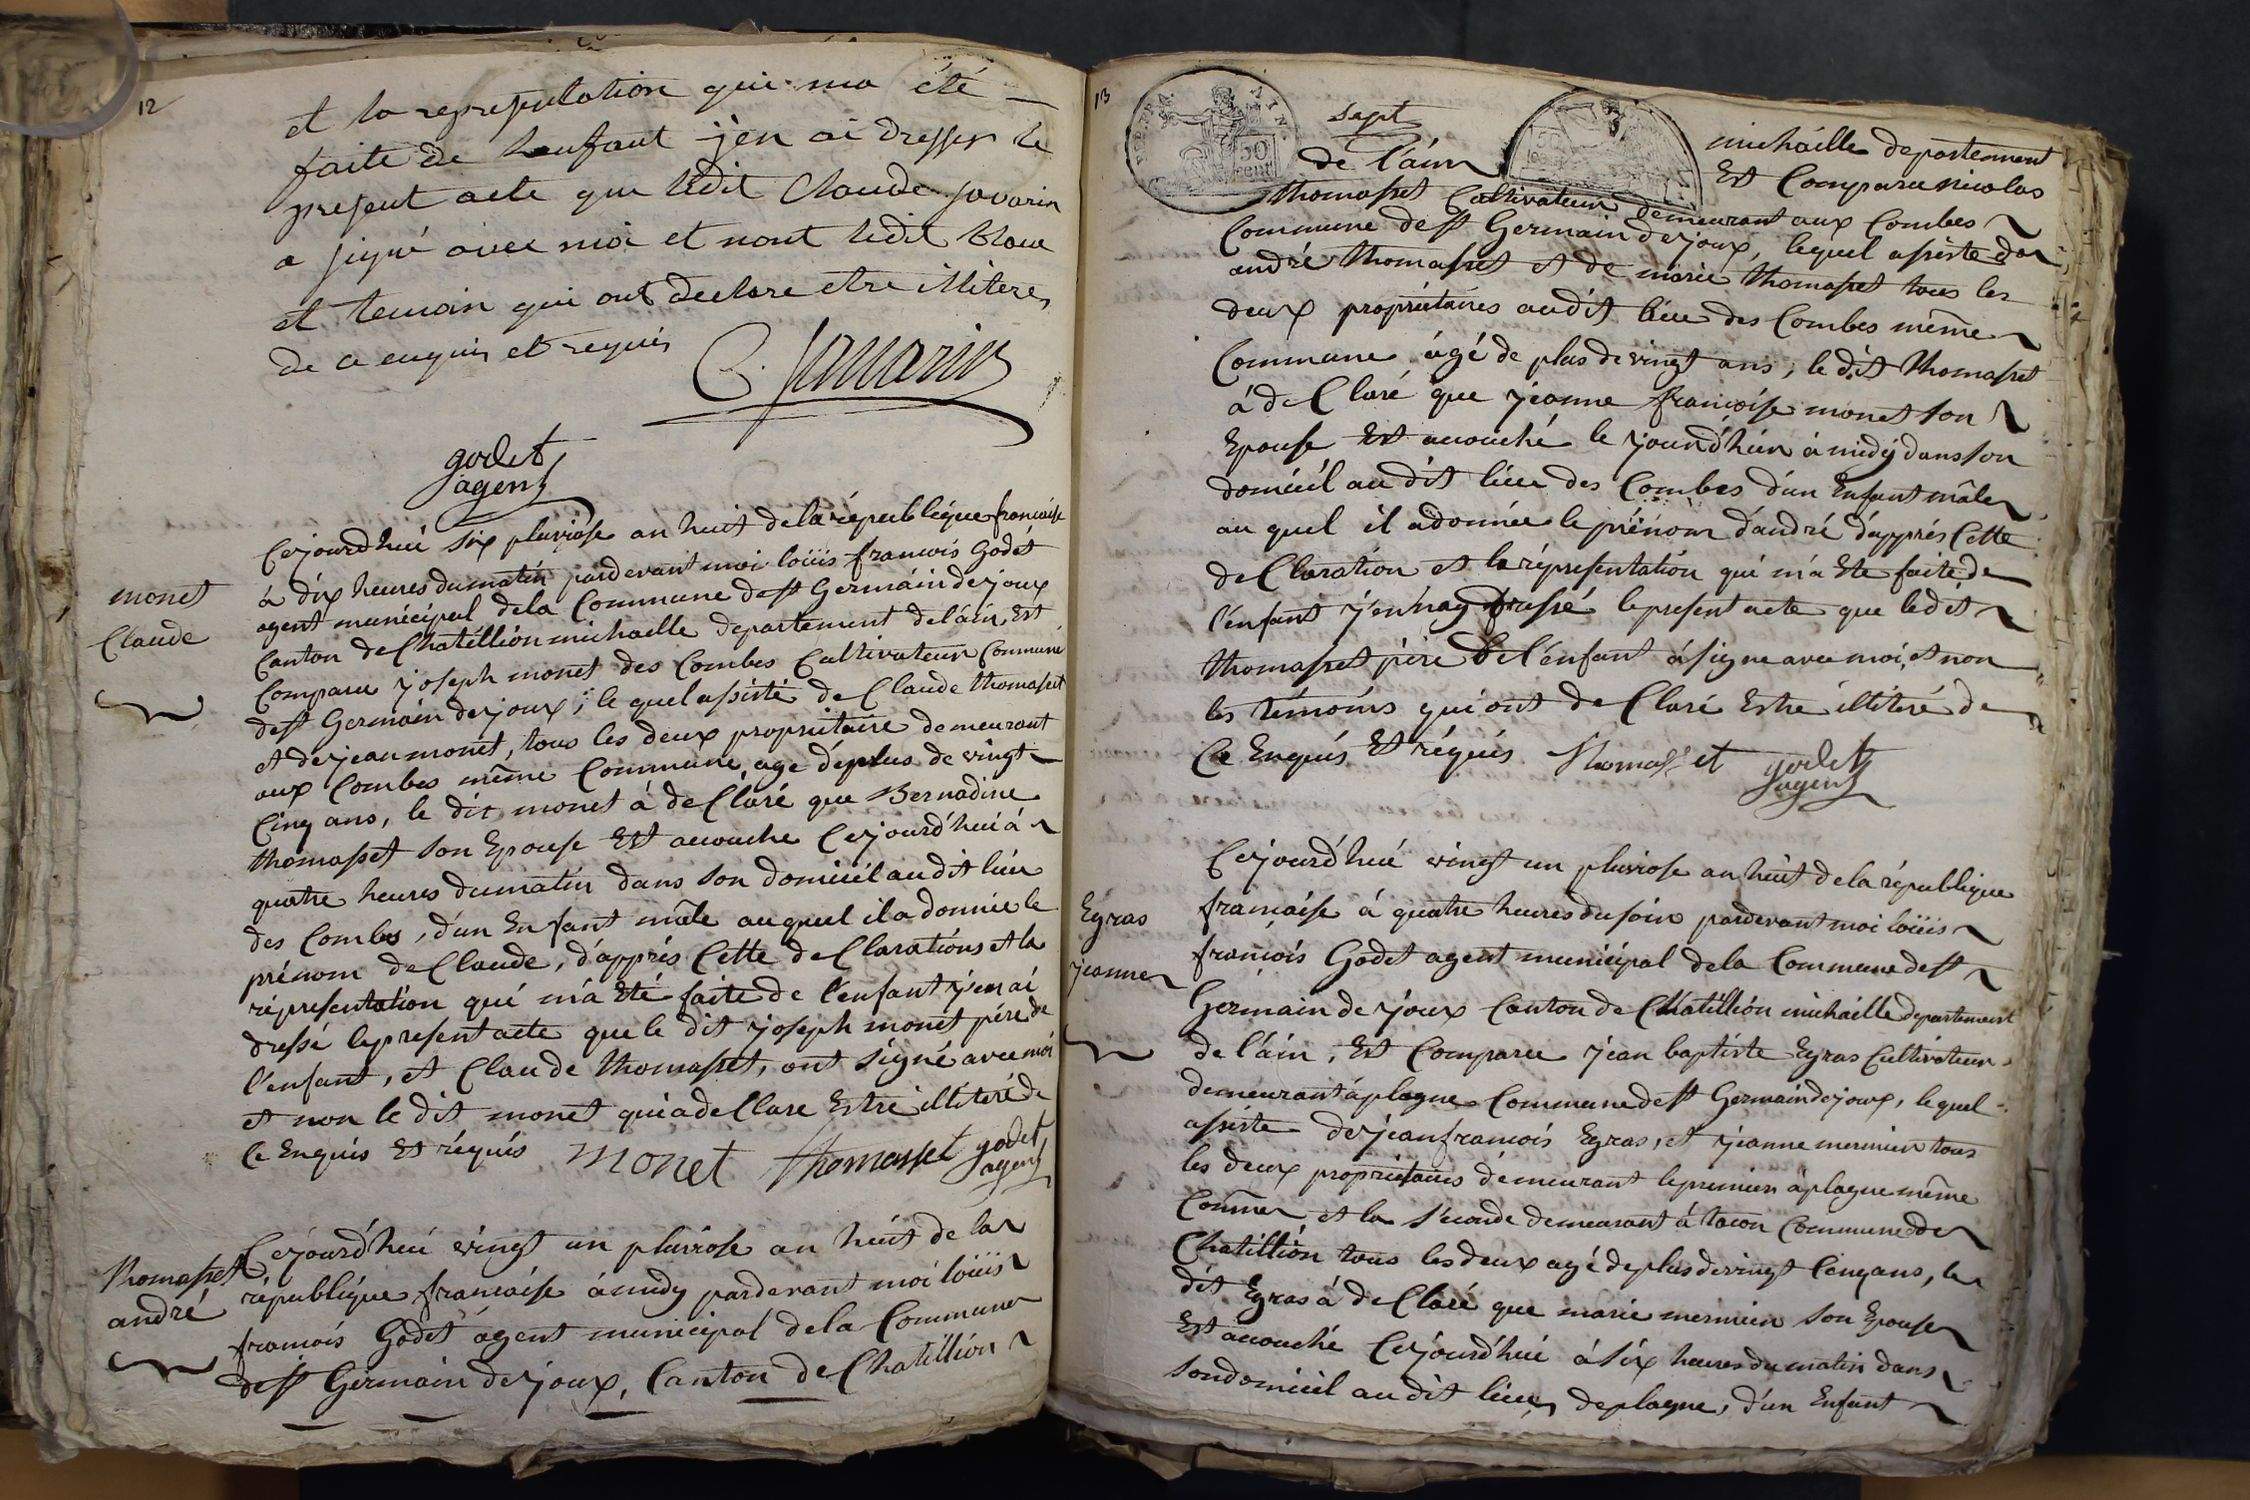 12
et la representation qui ma été
faite de lenfant j'en ai dresser le
present acte que ledit Claude Savarin
a signé avec moi et nont ledit blanc
et temoin qui ont declare etre illiteres
de ce enquis et requis
C. Savarin
godet
agent
monet
Claude
Cejourd'hui six pluviose an huit dela république francoise
à dix heures du matin pardevant moi loüis francois Godet
agent municipal dela Commune de st Germain de joux
Canton de Chatillion michaille departement de l'áin, Est
Comparu joseph monet des Combes Cultivateur Commune
de st Germain de joux, le quel assisté de Claude thomasset
et de jean monet, tous les deux propriétaire demeurant
aux Combes même Commune, age de plus de vingt
Cinq ans, le dit monet à de Claré que Bernadine
thomasset son Epouse Est acouche Cejourd'hui à
quatre heures du matin dans son domicil au dit lieu
des Combes, d'un Enfant mâle au quel il a donnée le
prénom de Claude, d'apprés Cette de Clarations et la
répresentation qui m'a Eté faite de l'enfant j'en ai
dressé le present acte que le dit joseph monet pére de
l'enfant, et Claude thomasset, ont signé avec moi
et non le dit monet qui a de Clare Estre illiteré de
Ce Enquis Et réquis monet thomasset godet
agent
thomasset
andré
Cejourd'hui vingt un pluviose an huit de la
république francaise à midy pardevant moi loüis
francois Godet agent municipal dela Commune
de st Germain de joux, Canton de Chatillion
13
sept
michaille departement
de l'áin Est Comparu nicolas
thomasset Cultivateur demeurant aux Combes
Commune de st Germain de joux, lequel assiste de
andré thomasset et de marie thomasset tous les
deux propriétaires audit lieu des Combes même
Commune ágé de plus de vingt ans, le dit thomasset
à de Claré que jeanne francoise monet son
Epouse Est acouché le jourd'hui à midy dans son
domicil au dit lieu des Combes d'un Enfant mâle
au quel il a donnée le prénom d'andré d'apprés Cette
de Claration et la répresentation qui m'a Ete faite de
l'enfant j'en nay dressé le present acte que ledit
thomasset pére de l'enfant à signe avec moi, et non
les témoins qui ont de Claré Estre illiteré de
Ce Enquis Et réquis thomasset godet
agent
Egras
jeanne
Cejourd'hui vingt un pluviose an huit de la république
francaise à quatre heures du soir pardevant moi loüis
françois Godet agent municipal dela Commune de st
Germain de joux Canton de Chatillion michaille departement
de l'áin, Est Comparu jean baptiste Egras Cultivateur
demeurant à plagne Commune de st Germain de joux, le quel
assiste de jean francois Egras, et jeanne mermier tous
les deux propriétaires demeurant le premier à plagne même
Comme et la seconde demeurant à tacon Commune de
Chatillion tous les deux agé de plus de vingt Cinq ans, le
dit Egras à de Claré que marie mermier son Epouse
Est acouché Cejourd'hui à six heures du matin dans
son domicil au dit lieu de plagne, d'un Enfant